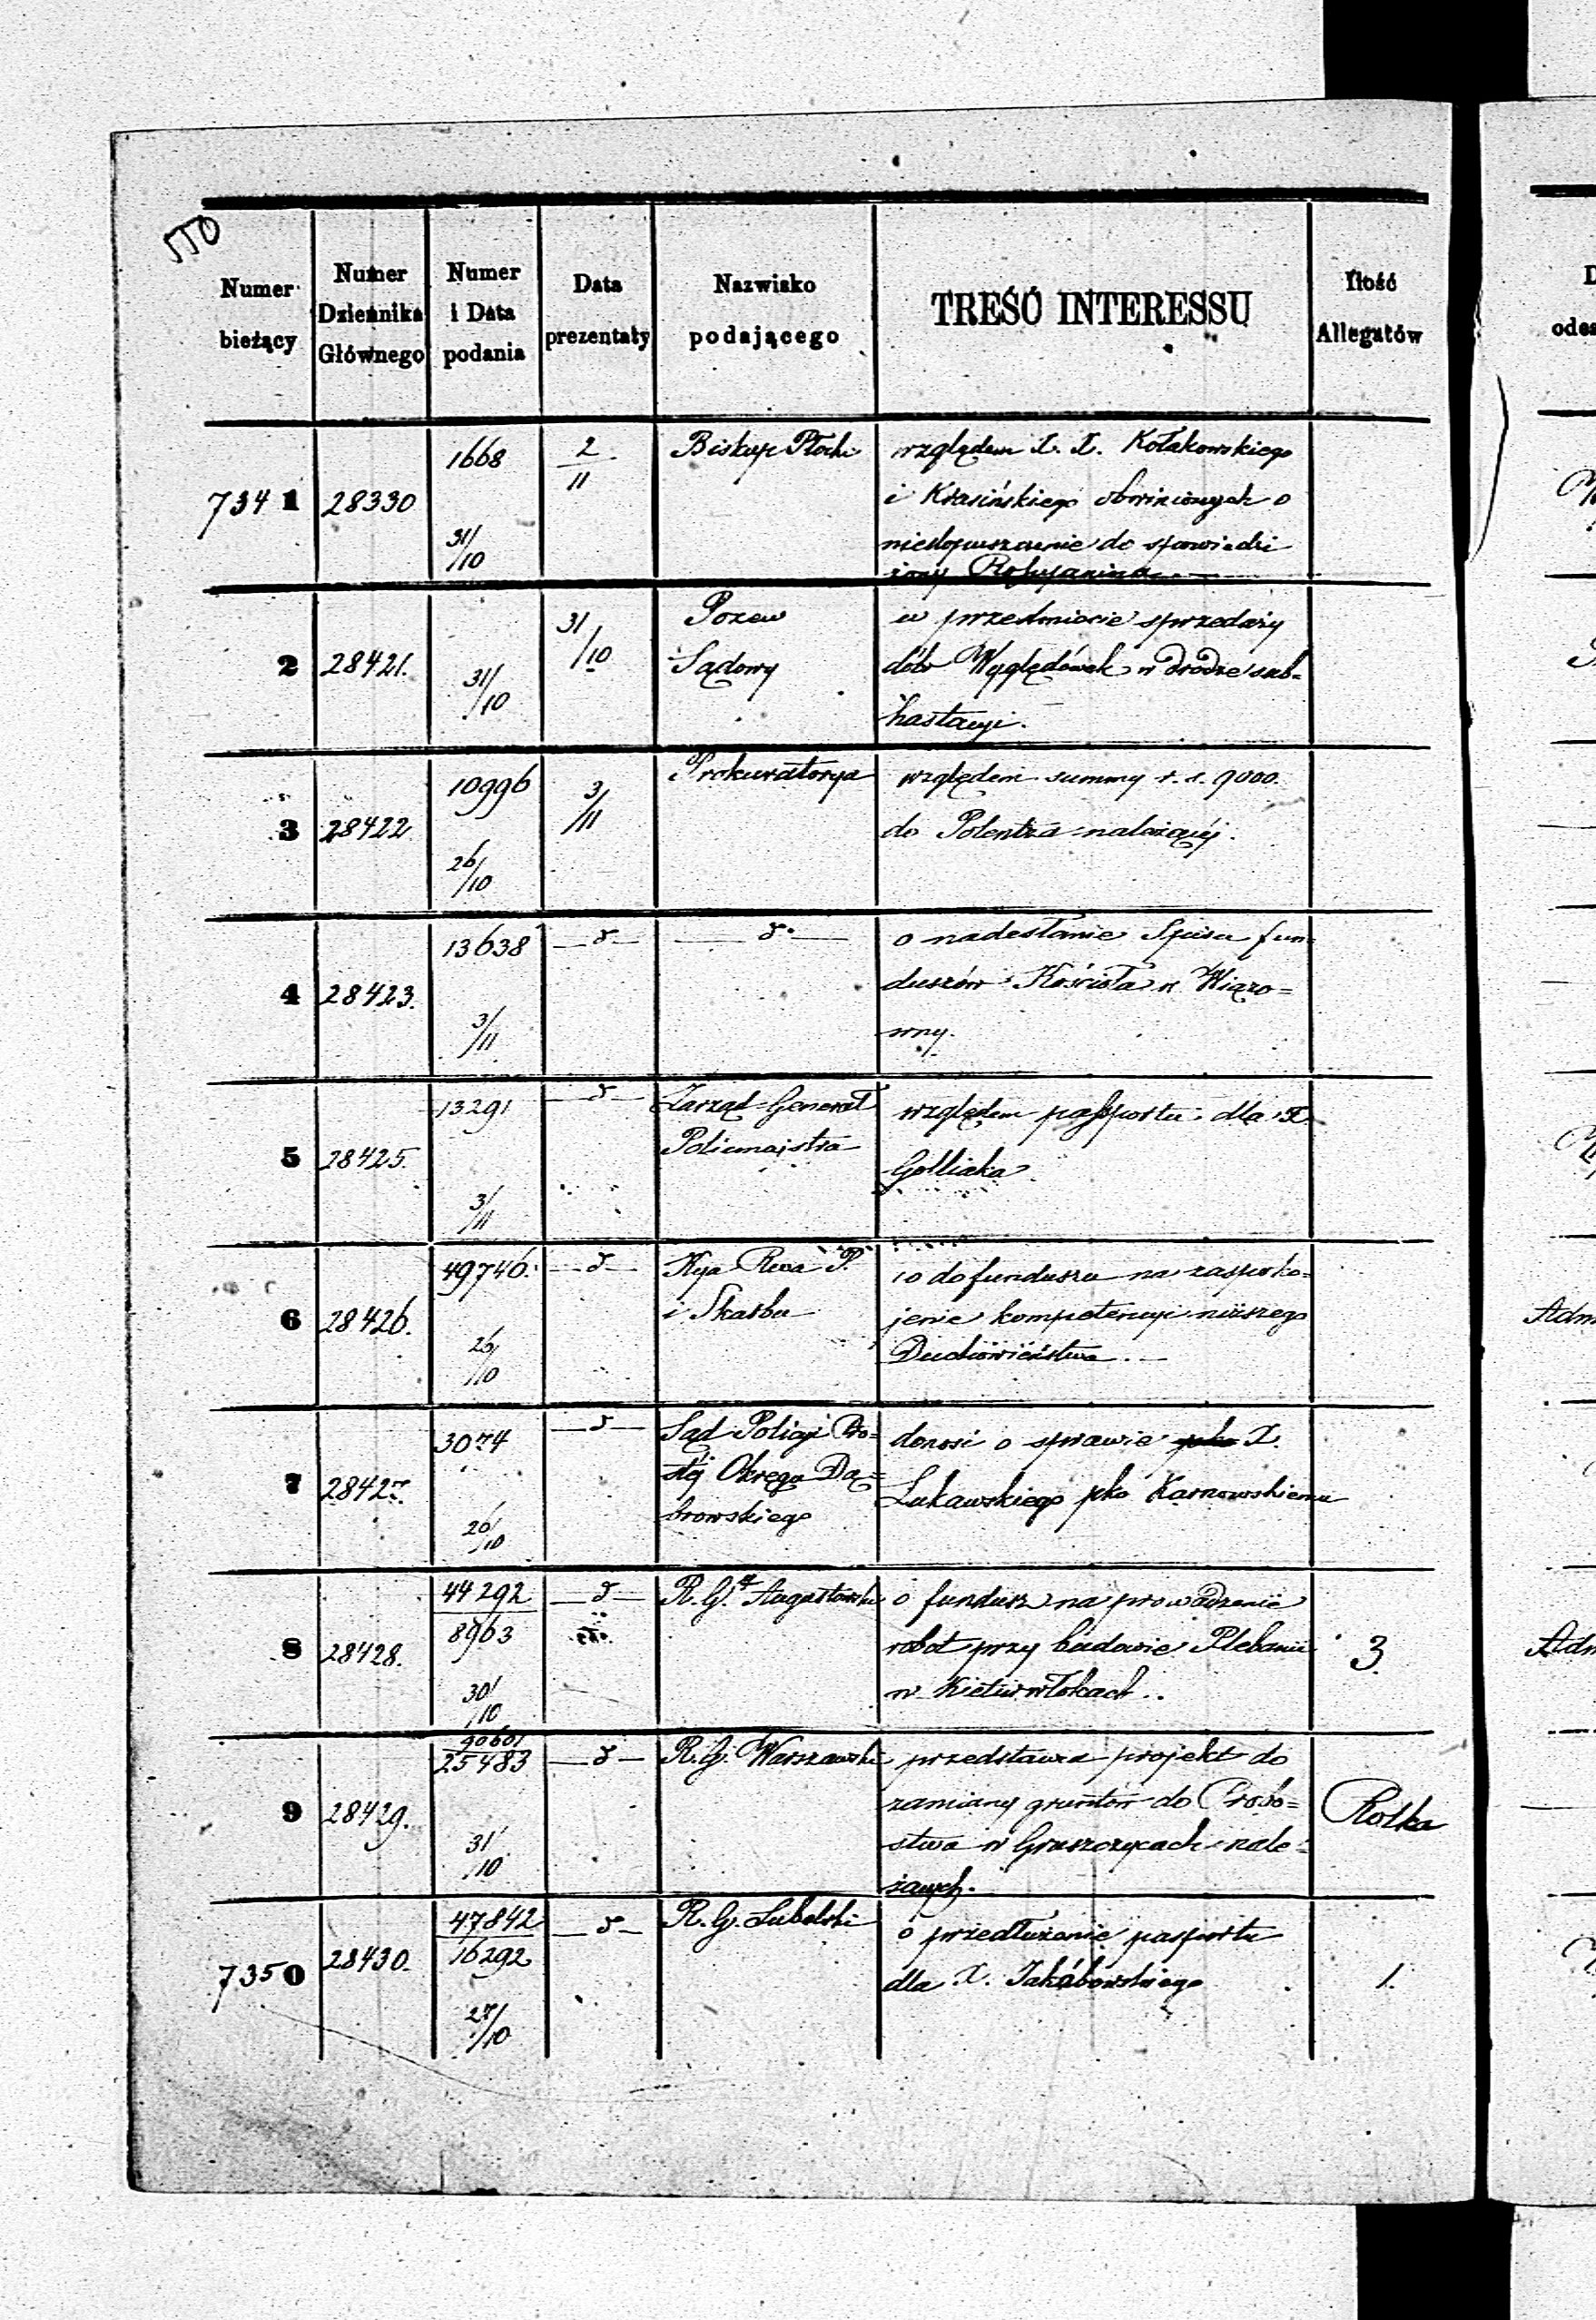 550
Numer bieżący
Numer Dziennika Głównego
Numer i Data podania
Data prezentaty
Nazwisko podającego
TREŚĆ INTERESSU
Ilość Allegatów
7341 28330 1668 31/10 2/11 Biskup Płocki
względem X. X. Kołakowskiego
i Krasińskiego obwinionych o
niedopuszczenie do spowiedzi
żony
2 28421. 31/10 31/10 Pozew
Sądowy
w przedmiocie sprzedaży
dóbr Wyględówek w drodze sub=
hastacyi.
3 28422 10996 26/10 3/11 Prokuratorya
względem summy r. s. 9000.
do Polentza należącéj.
4 28423. 13638 3/11 — d — — d° —
o nadesłanie Spisu fun=
duszów Kościoła w Wiązo=
wny.
5 28425. 13291 3/11 — d — Zarząd Generał
Policmajstra
względem passportu dla X.
Golliaka
6 28426. 49746. 26/10 — d — Kya Rwa P.
i Skarbu
co do funduszu na zaspoko=
jenie kompetencyi niższego
Duchowieństwa. —
7 28427. 3074 20/10 — d — Sąd Policyi Pro=
stéj Okręgu Dą=
browskiego
donosi o sprawie X.
Łukawskiego pko Karnowskiemu
8 28428. 44292 8963 30/10 — d — R. G. Augustowski
o fundusz na prowadzenie
robot przy budowie Plebanii
w Kietuwłokach..
3.
9 28429. 90601 25483 31/10 — d — R. G. Warszawski
przedstawia projekt do
zamiany gruntów do Probo=
stwa w Gruszczycach nale=
żących.
Rolka
7350 28430. 47842 16292 27/10 — d — R. G. Lubelski
o przedłużenie pasportu
dla X. Jakubowskiego
1.